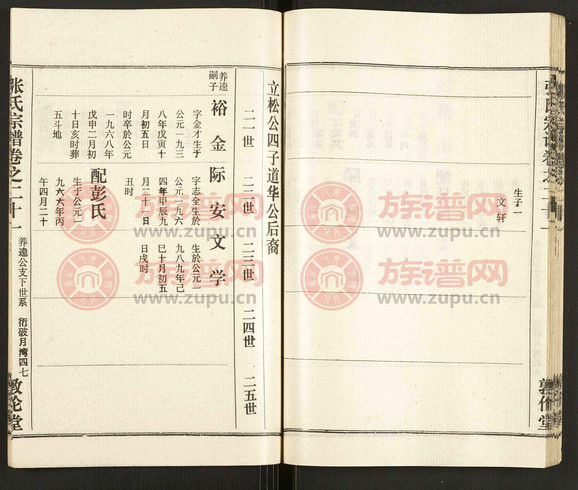 张氏宗谱卷之二十一
敦伦堂
生子一
文轩
立松公四子道华公后裔
二一世
二二世
二三世
二四世
二五世
养逵嗣子
裕金
字金才生于
公元一九三
八年戊寅十
月初五日
时卒於公元
一九六八年
戊申二月初
十日亥时葬
五斗地
际安
字志全生於
公元一九六
四年甲辰九
月二十一日
丑时
配彭氏
生于公元一
九六六年丙
午四月二十
文学
生於公元一
九八九年己
巳十月初五
日戌时
张氏宗谱卷之二十一
养逵公支下世系
衍破月湾四七
敦伦堂
族谱网
www.zupu.cn
族谱网
www.zupu.cn
族谱网
www.zupu.cn
族谱网
www.zupu.cn